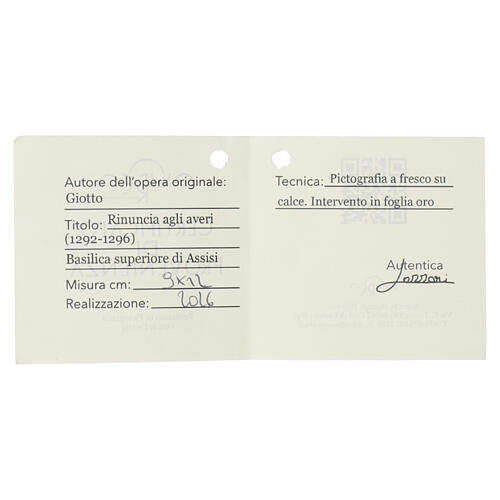 Autore dell'opera originale:
Giotto
Titolo: Rinuncia agli averi
(1292-1296)
Basilica superiore di Assisi
Misura cm: 9x12
Realizzazione: 2026
Tecnica: Pictografia a fresco su
calce. Intervento in foglia oro
Autentica